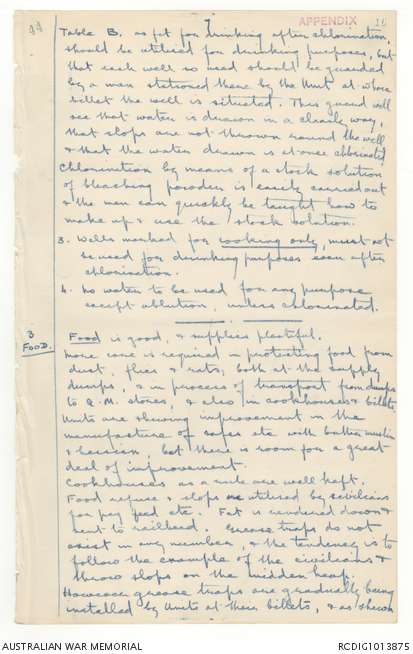 44
7
APPENDIX 16
Table B. as fit for drinking after chlorination,
should be utilised for drinking purposes, but
that each well so used should be guarded
by a man stationed there by the Unit at whose
billet the well is situated. This guard will
see that water is drawn in a cleanly way,
that slops are not thrown around the well
& that the water drawn is at once chlorinated.
Chlorination by means of a stock solution
of bleaching powder is easily carried out
& the men can quickly be taught how to
make up & use the stock solution.
3. Wells marked for cooking only, must not
be used for drinking purposes even after
chlorination.
4. No water to be used for any purpose
except ablution, unless chlorinated.
3
FOOD.
Food is good, & supplies plentiful.
More care is required in protecting food from
dust, flies & rats, both at the supply
dumps, & in process of transport from dumps
to Q.M. stores, & also in cookhouses & billets.
Units are shewing improvement in the
manufacture of safes etc with butter muslin
& hessian, but there is room for a great
deal of improvement.
Cookhouses as a rule are well kept.
Food refuse & slops utilised by civilians
for pig feed etc. Fat is rendered down &
sent to railhead. Grease traps do not
exist in any number, & the tendency is to
follow the example of the civilians &
throw slops on the midden heap.
However grease traps are gradually being
installed by Units at their billets, & as shewn
AUSTRALIAN WAR MEMORIAL
RCDIG1013875